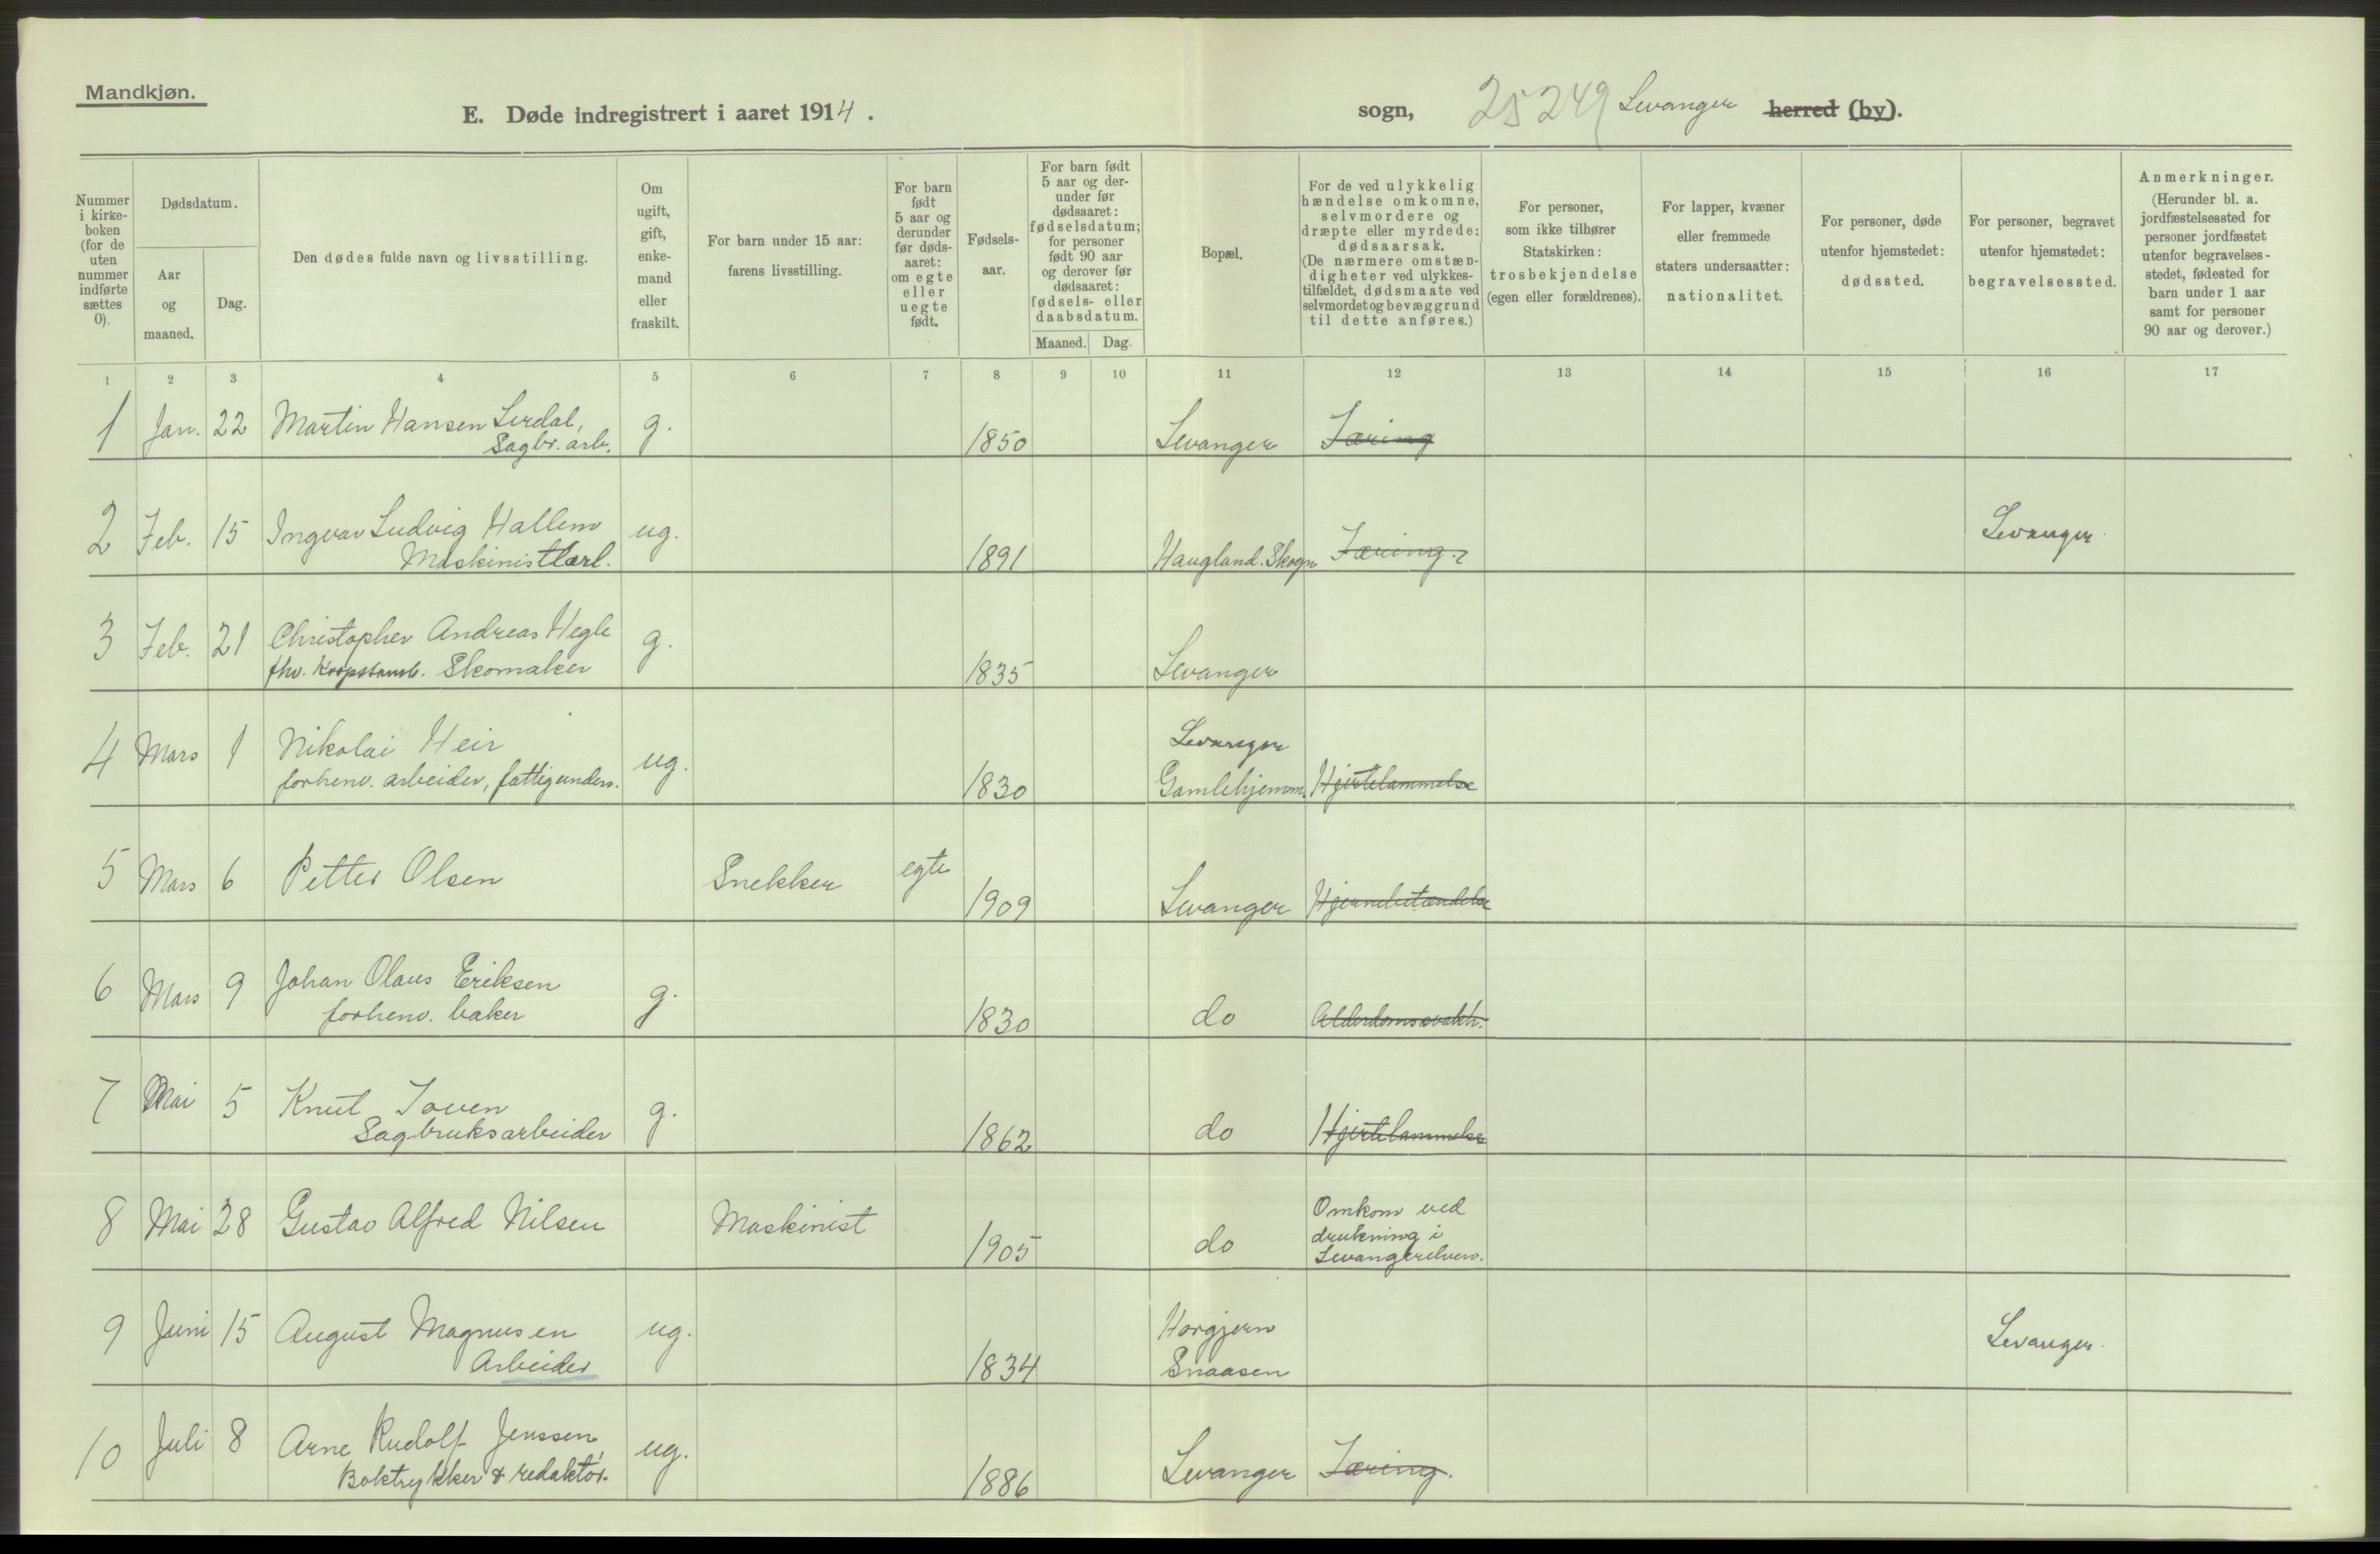 Mandkjøn.
E. Døde indregistrert i aaret 1914.
sogn, 25249 Levanger herred (by).
Nummer i kirkeboken (for de uten nummer indførte sættes 0).
Dødsdatum.
Aar og maaned.
Dag.
Den dødes fulde navn og livsstilling.
Om ugift, gift, enkemand eller fraskilt.
For barn under 15 aar: farens livsstilling.
For barn født 5 aar og derunder før dødsaaret: om egte eller uegte født.
Fødselsaar.
For barn født 5 aar og derunder før dødsaaret: fødselsdatum; for personer født 90 aar og derover før dødsaaret: fødsels- eller daabsdatum.
Maaned. Dag.
Bopæl.
For de ved ulykkelig hændelse omkomne, selvmordere og dræpte eller myrdede: dødsaarsak. (De nærmere omstændigheter ved ulykkestilfældet, dødsmaate ved selvmordet og bevæggrund til dette anføres.)
For personer, som ikke tilhører Statskirken: trosbekjendelse (egen eller forældrenes).
For lapper, kvæner eller fremmede staters undersaatter: nationalitet.
For personer, døde utenfor hjemstedet: dødssted.
For personer, begravet utenfor hjemstedet: begravelsessted.
Anmerkninger. (Herunder bl. a. jordfæstelsessted for personer jordfæstet utenfor begravelsesstedet, fødested for barn under 1 aar samt for personer 90 aar og derover.)
1 2 3 4 5 6 7 8 9 10 11 12 13 14 15 16 17
1 Jan. 22 Martin Hansen Lerdal, g. 1850 Levanger Tæring
Sagbr. arb.
2 Feb. 15 Ingvar Ludvig Hallem ug. 1891 Haugland. Skogn Tæring. Levanger.
Maskinistlærl.
3 Feb. 21 Christopher Andreas Hegle g. 1835 Levanger
fhv. Skomaker
4 Mars 1 Nikolai Heir ug. 1830 Levanger
forhenv. arbeider, fattigunders. Gamlehjemm. Hjertelammelse
5 Mars 6 Petter Olsen Snekker egte 1909 Levanger Hjernebetændelse
6 Mars 9 Johan Olaus Eriksen g. 1830 do Alderdomssvakh.
forhenv. baker
7 Mai 5 Knut Toven g. 1862 do Hjertelammelse
Sagbruksarbeider
8 Mai 28 Gustav Alfred Nilsen Maskinist 1905 do Omkom ved
drukning i
Levangerelven.
9 Juni 15 August Magnusen ug. 1834 Levanger.
Arbeider Snaasen
10 Juli 8 Arne Rudolf Jenssen, ug. 1886 Levanger Tæring.
Boktrykker & redaktør.